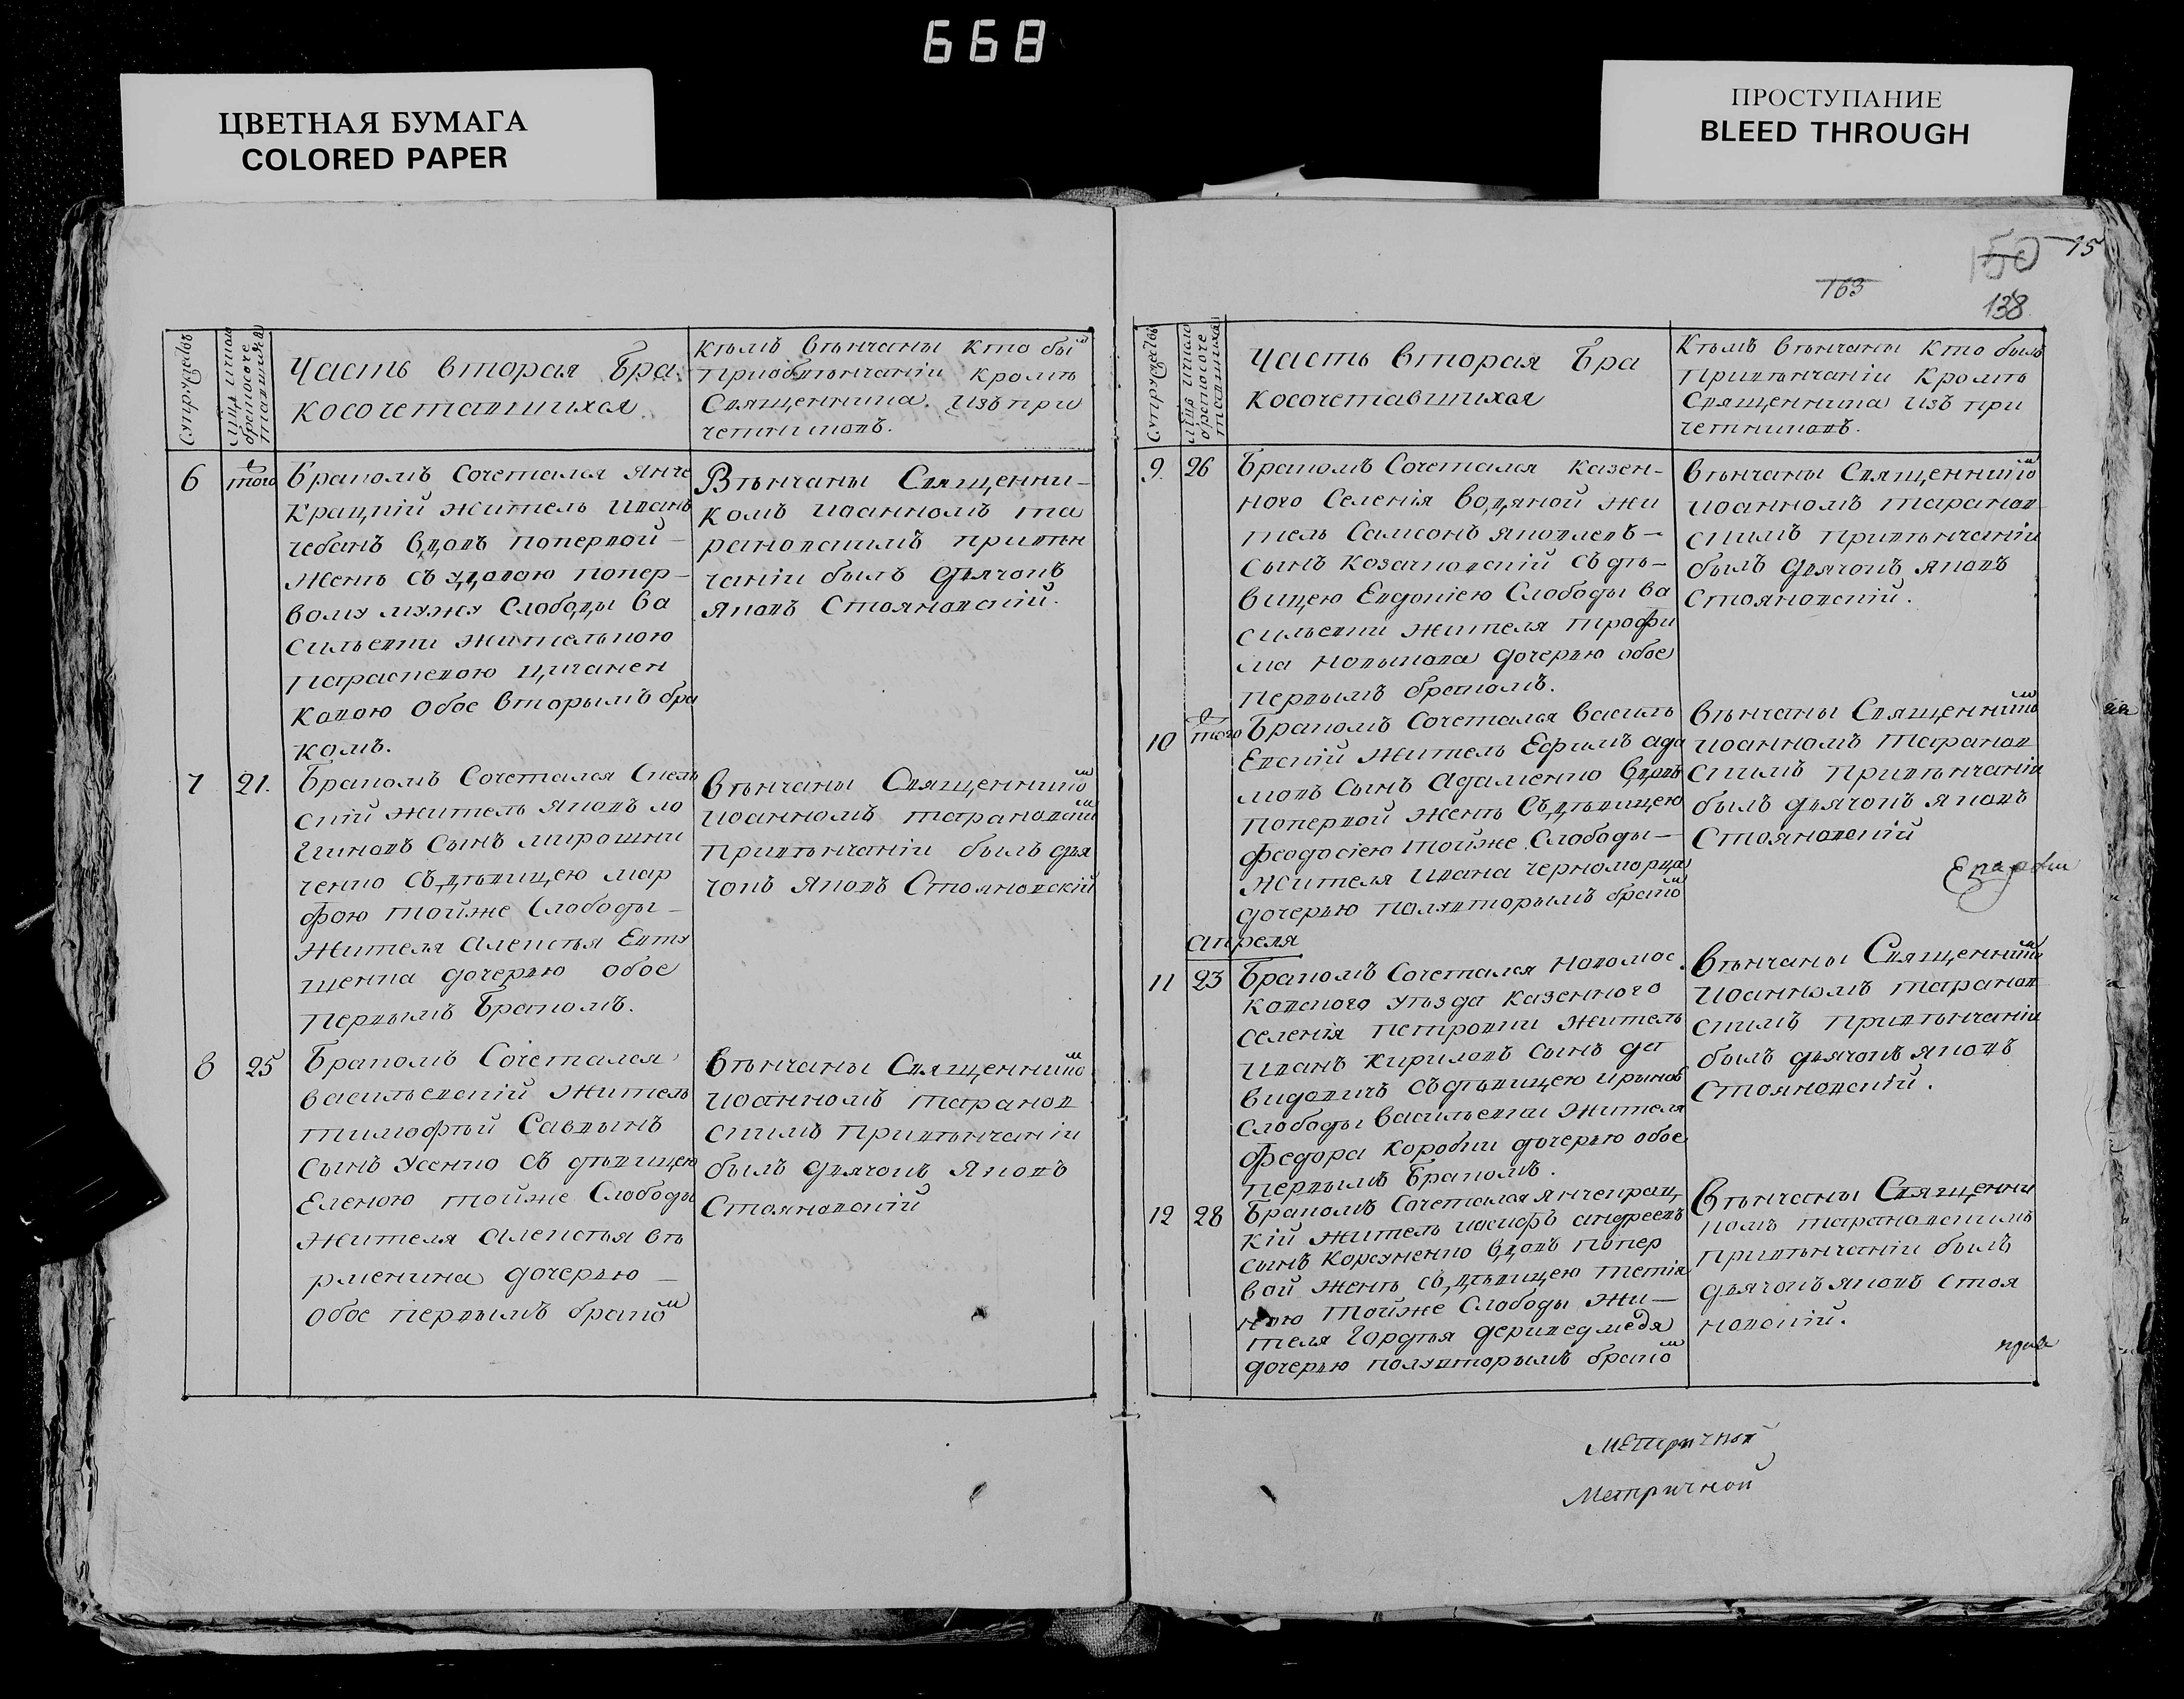 668
ЦВЕТНАЯ БУМАГА
COLORED PAPER
ПРОСТУПАНИЕ
BLEED THROUGH
150
15
163
138
Супружествъ
Часть вторая Бра
косочетавшихся
Кѣмъ вѣнчаны кто бы
приобвѣнчаніи кромѣ
Священника изъ при
четниковъ.
6
того
Бракомъ Сочетался Янче
Крацкій житель Иванъ
чебанъ вдовъ попервой
женѣ съ удовою попер-
вому мужу Слободы Ва
сильевки жителькою
Параскевою Циганен
ковою Обое вторымъ бра
комъ.
Вѣнчаны Священни-
комъ Иоанномъ Та
рановскимъ привѣн
чаніи былъ дьячокъ
Яковъ Стояновскій.
7
21.
Бракомъ Сочетался
скій житель Яковъ ло
гиновъ Сынъ мирошни
ченко съ дѣвицею мар
фою тойже Слободы
жителя Алексѣя Евту
шенка дочерью обое
первымъ Бракомъ.
Вѣнчаны Священнико м
Иоанномъ Тарановски м
привѣнчаніи былъ дья
чокъ Яковъ Стояновскій
8
25
Бракомъ Сочетался
васильевскій житель
тимофѣй Саввынъ
сынъ Усенко съ дѣвицею
Еленою тойже Слободы
жителя Алексѣя вѣ
рменика дочерью
Обое первымъ брако м
Вѣнчаны Священнико м
Иоанномъ Таранов
скимъ привѣнчаніи
былъ дьячокъ Яковъ
Стояновскій
Супружествъ
Часть вторая Бра
косочетавшихся
Кѣмъ вѣнчаны кто былъ
привѣнчаніи кромѣ
Священника изъ при
четниковъ.
9.
26
Бракомъ Сочетался казен-
ного Селенія водяной жи
тель Самсонъ яковлевъ
сынъ Козачковскій съ дѣ-
вицею Евдокіею Слободы ва
сильевки жителя трофи
ма новикова дочерью обое
первымъ бракомъ.
вѣнчаны Священнико м
иоанномъ таранов
скимъ привѣнчаніи
былъ дьячокъ яковъ
Стояновскій.
10
того
Бракомъ Сочетался василь
Евскій житель Ефимъ ада
мовъ Сынъ Адаменко вдовъ
попервой женѣ съ дѣвицею
феодосіею тойже Слободы
жителя ивана черноморца
дочерью полувторымъ брако м
вѣнчаны Священнико м
иоанномъ таранов
скимъ привѣнчаніи
былъ дьячокъ яковъ
Стояновскій
апреля
11
23
Бракомъ Сочетался новомос
ковского уѣзда казенного
селенія петровки житель
иванъ кириловъ сынъ да
видовичъ съ дѣвицею
слободы васильевки жителя
федора коробки дочерью обое
первымъ Бракомъ.
Вѣнчаны Священнико м
иоанномъ таранов
скимъ привѣнчаніи
былъ дьячокъ яковъ
Стояновскій.
12
28
Бракомъ Сочетался янчекрац
кій житель иосифъ андреевъ
сынъ Корсуненко вдовъ попер
вой женѣ съ дѣвицею
тойже Слободы жи-
теля Гордѣя деринедмедя
дочерью полувторымъ брако м
Вѣнчаны Священни
комъ тарановскимъ
привѣнчаніи былъ
дьячокъ яковъ стоя
новскій.
Метричной
Метричной